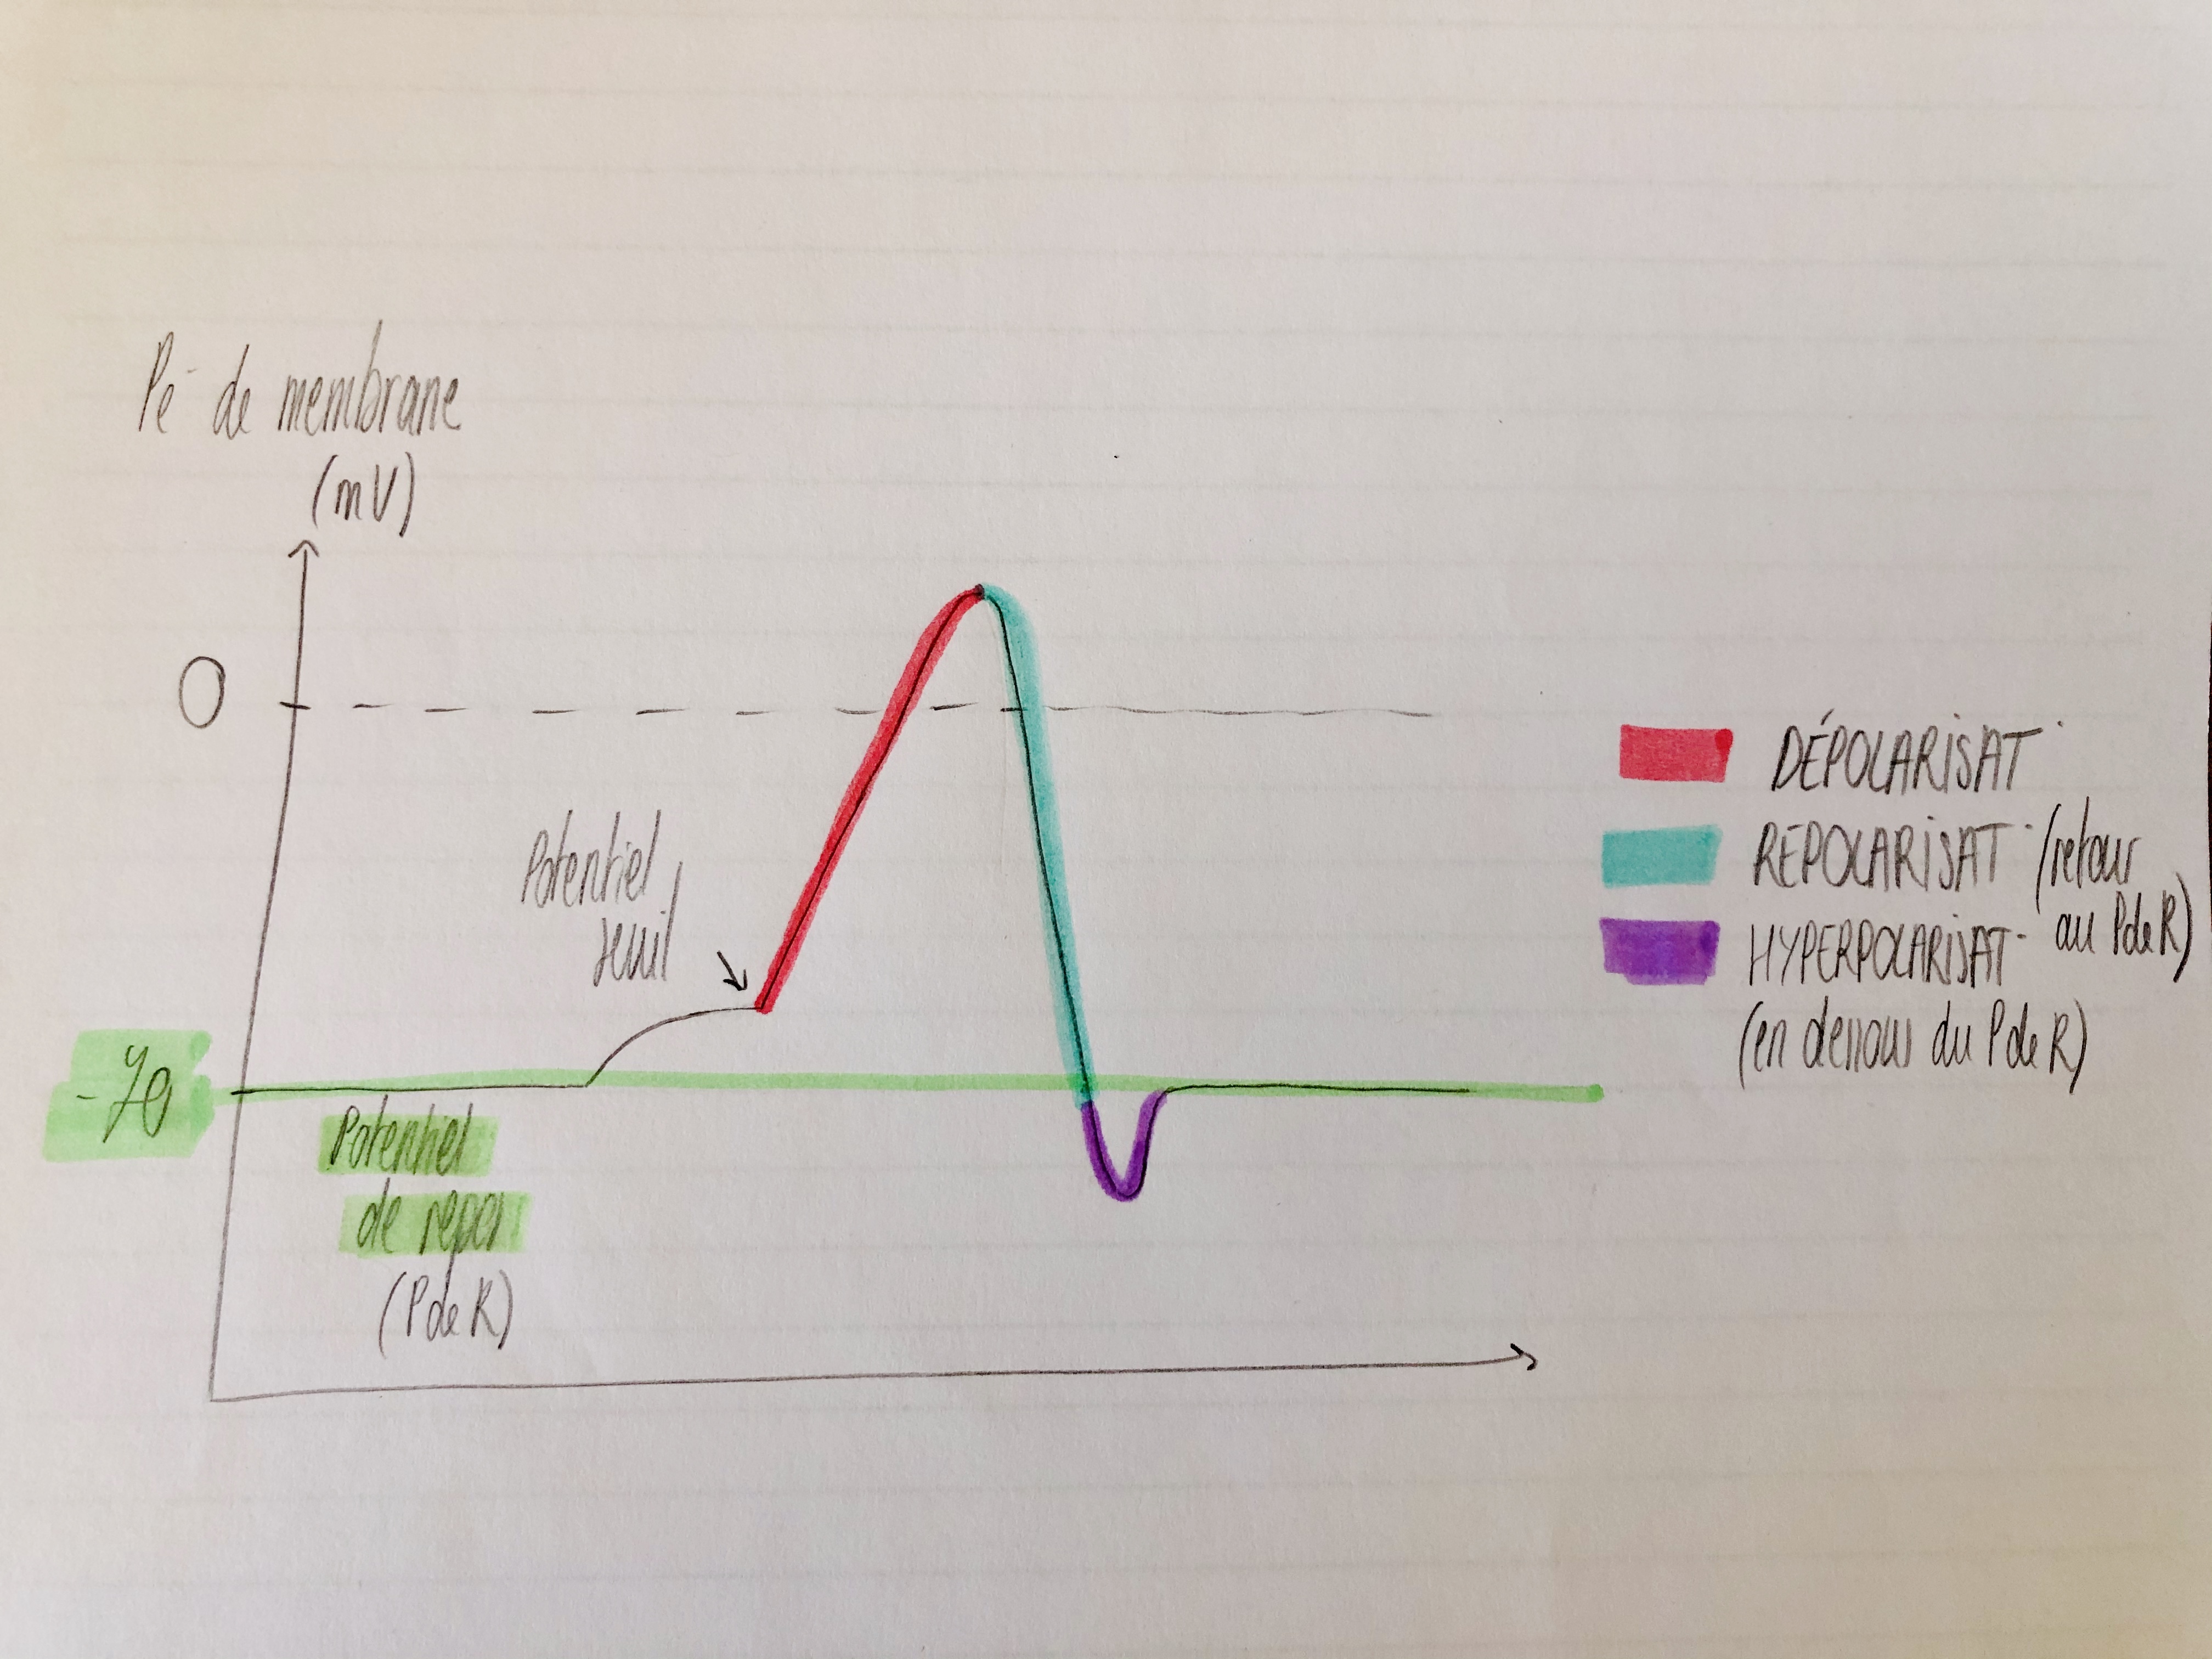 Pe- de membrane
(mV)
0
Potentiel
seuil
-70
Potentiel
de repos
(P de R)
DÉPOLARISAT-
REPOLARISAT- (retour
au P de R)
HYPERPOLARISAT-
(en dessous du P de R)